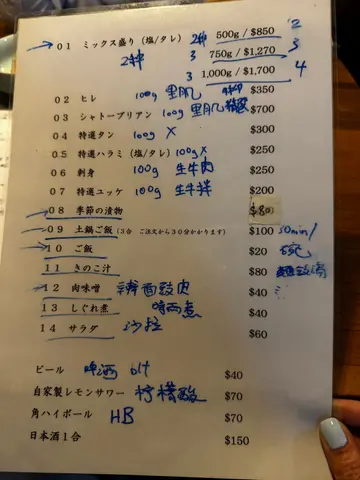 → 01 ミックス盛り (塩/タレ) 500g / $850 2
2种 3 750g / $1,270 3
3 1,000g / $1,700 4
02 ヒレ 100g 里肌 $350
03 シャトーブリアン 100g 里肌 $700
04 特選タン 100g X $300
05 特選ハラミ (塩/タレ) 100g X $250
06 刺身 100g 生牛肉 $250
07 特選ユッケ 100g 生牛拌 $200
→ 08 季節の漬物 $80
→ 09 土鍋ご飯 (3合 ご注文から30分かかります) $100 30min/
→ 10 ご飯 $20 碗
11 きのこ汁 $80
→ 12 肉味噌 $40
13 しぐれ煮 時雨煮 $40
14 サラダ 沙拉 $60
ビール 啤酒 $40
自家製レモンサワー 柠檬酸 $70
角ハイボール HB $70
日本酒1合 $150